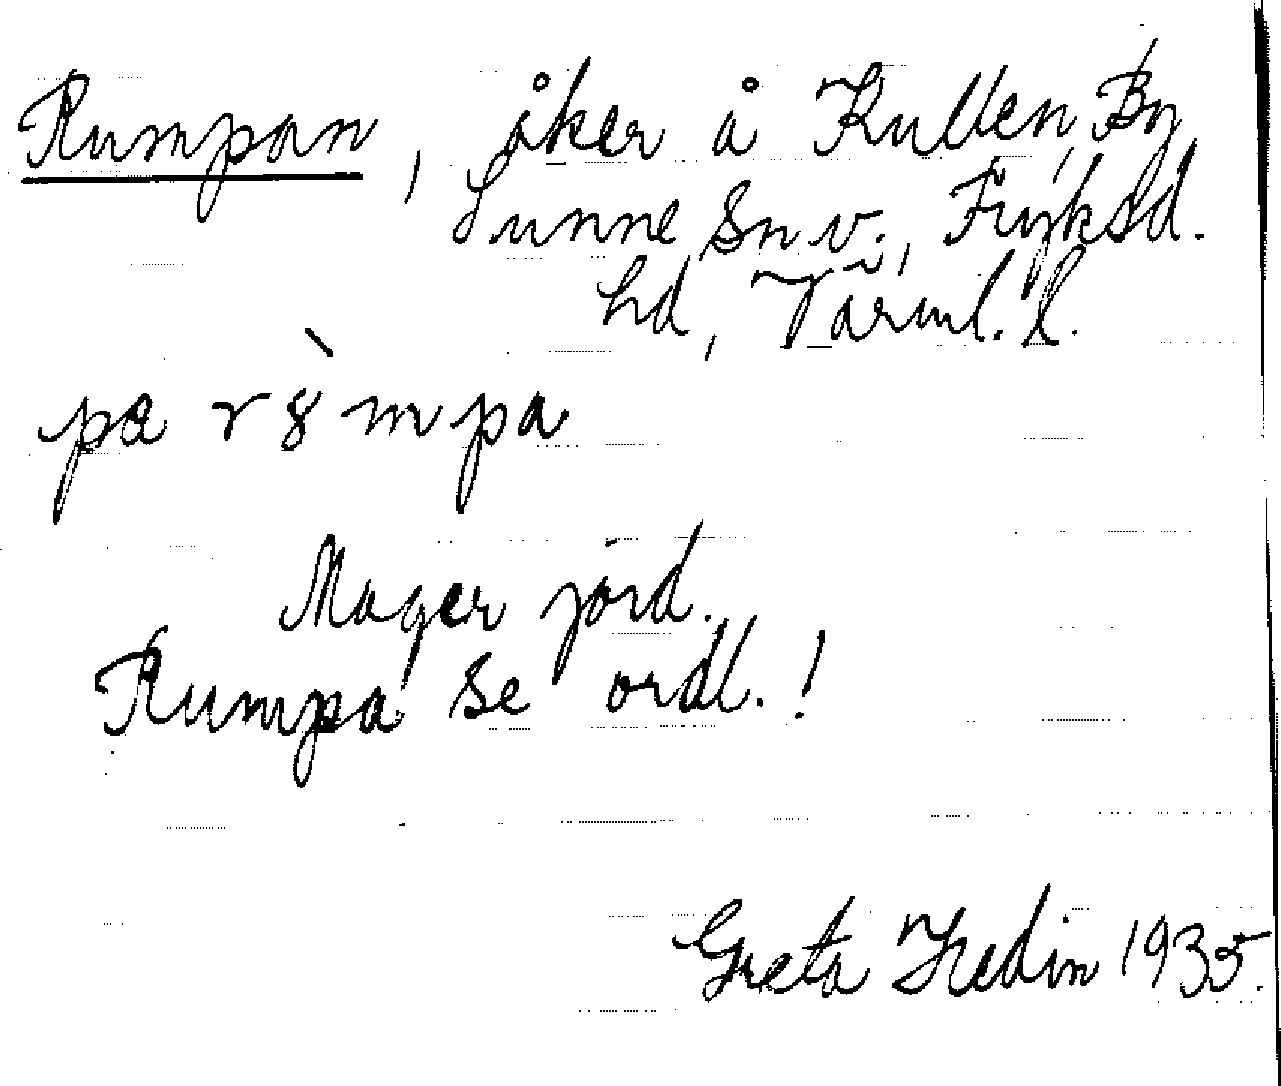 Rumpan, åker å Kullen, By,
Sunne Sn v., Fryksd.
hd, Värml. l.
pa r8̀mpa
Mager jord.
Rumpa se ordl.!
Greta Hedin 1935.